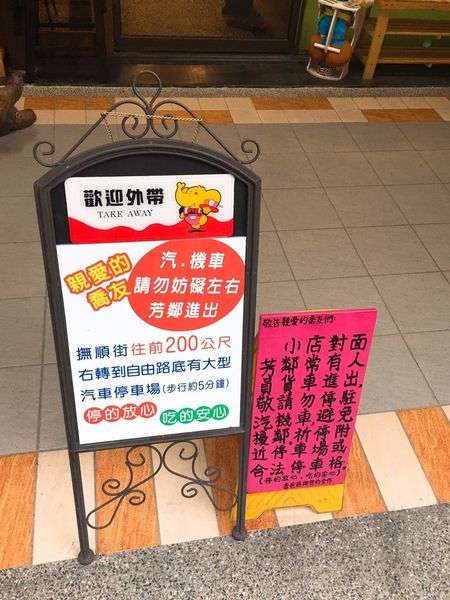 歡迎外帶
TAKE AWAY
親愛的
喬友
汽．機車
請勿妨礙左右
芳鄰進出
撫順街往前200公尺
右轉到自由路底有大型
汽車停車場(步行約5分鐘)
停的放心 吃的安心
敬告親愛的喬友們:
小店對面
芳鄰常有人
員貨車進出,
敬請勿停駐
汽機車避免
擾鄰,祈停附
近停車場或
合法停車格.
(停的放心,吃的安心)